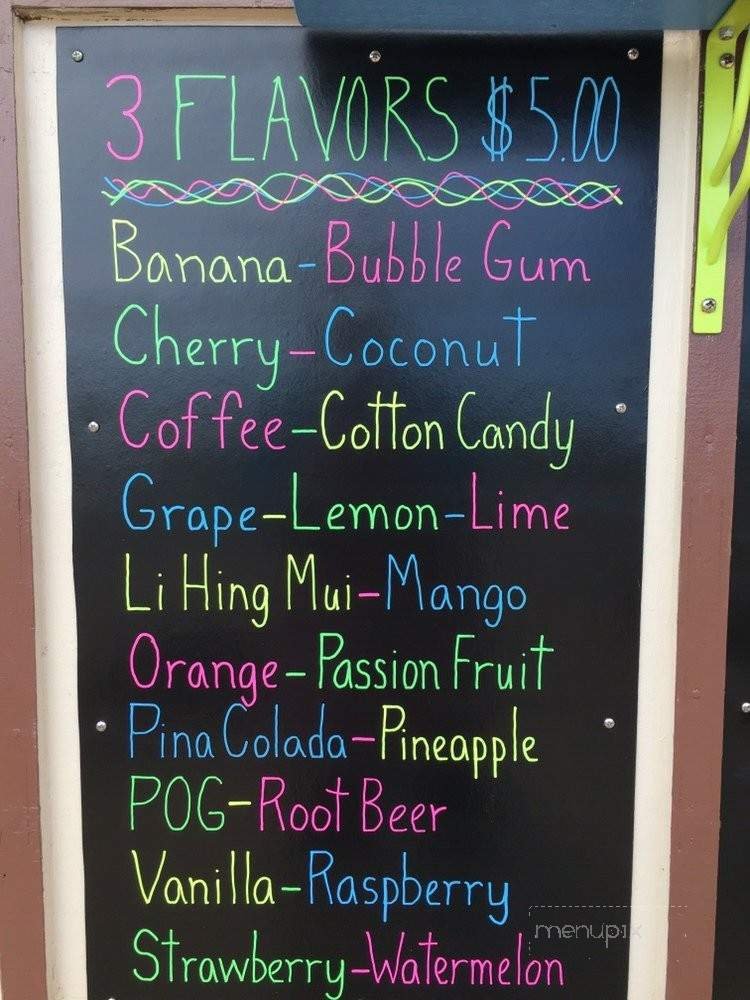 3 FLAVORS $5.00
Banana-Bubble Gum
Cherry-Coconut
Coffee-Cotton Candy
Grape-Lemon-Lime
Li Hing Mui-Mango
Orange-Passion Fruit
Pina Colada-Pineapple
POG-Root Beer
Vanilla-Raspberry
menupix
Strawberry-Watermelon